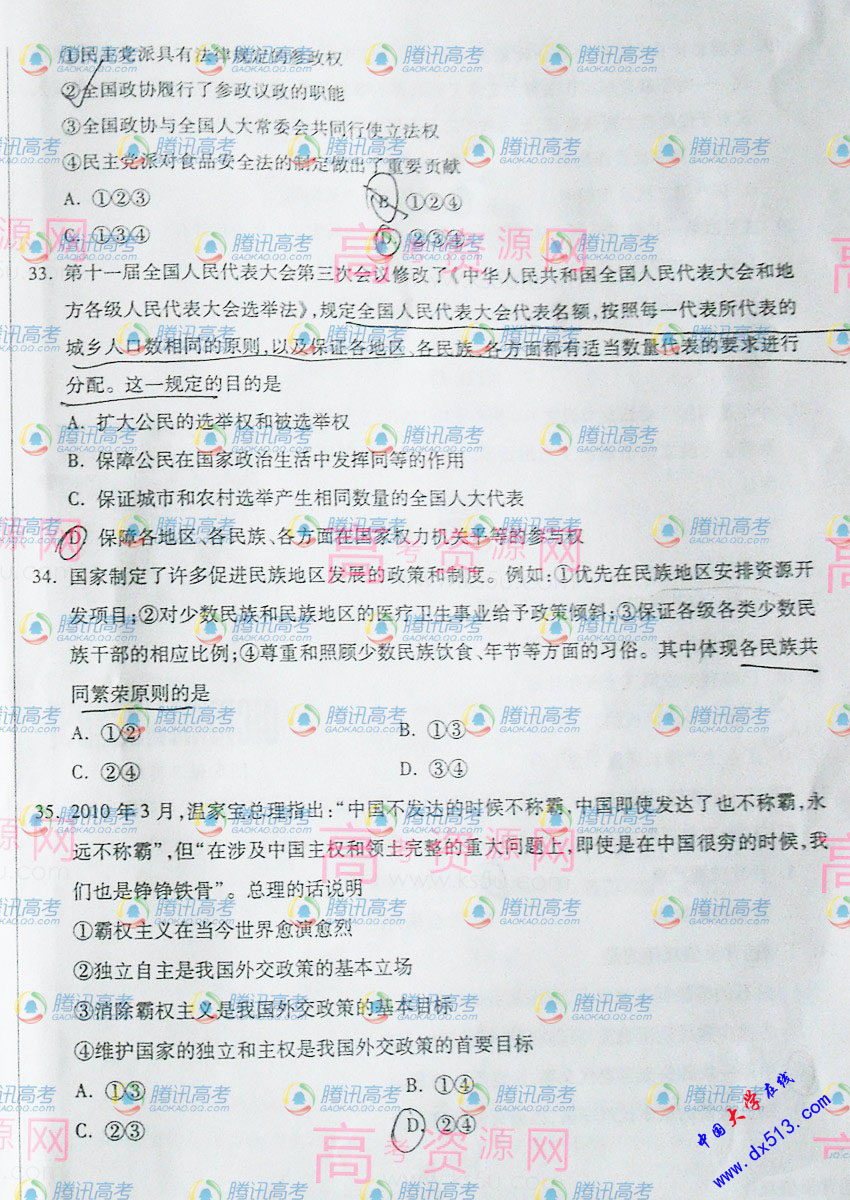 ①民主党派具有法律规定的参政权
②全国政协履行了参政议政的职能
③全国政协与全国人大常委会共同行使立法权
④民主党派对食品安全法的制定做出了重要贡献
A. ①②③ B. ①②④
C. ①③④ D. ②③④
33. 第十一届全国人民代表大会第三次会议修改了《中华人民共和国全国人民代表大会和地
方各级人民代表大会选举法》，规定全国人民代表大会代表名额，按照每一代表所代表的
城乡人口数相同的原则，以及保证各地区、各民族、各方面都有适当数量代表的要求进行
分配。这一规定的目的是
A. 扩大公民的选举权和被选举权
B. 保障公民在国家政治生活中发挥同等的作用
C. 保证城市和农村选举产生相同数量的全国人大代表
D. 保障各地区、各民族、各方面在国家权力机关平等的参与权
34. 国家制定了许多促进民族地区发展的政策和制度。例如：①优先在民族地区安排资源开
发项目；②对少数民族和民族地区的医疗卫生事业给予政策倾斜；③保证各级各类少数民
族干部的相应比例；④尊重和照顾少数民族饮食、年节等方面的习俗。其中体现各民族共
同繁荣原则的是
A. ①② B. ①③
C. ②④ D. ③④
35. 2010年3月，温家宝总理指出：“中国不发达的时候不称霸，中国即使发达了也不称霸，永
远不称霸”，但“在涉及中国主权和领土完整的重大问题上，即使是在中国很穷的时候，我
们也是铮铮铁骨”。总理的话说明
①霸权主义在当今世界愈演愈烈
②独立自主是我国外交政策的基本立场
③消除霸权主义是我国外交政策的基本目标
④维护国家的独立和主权是我国外交政策的首要目标
A. ①③ B. ①④
C. ②③ D. ②④
腾讯高考
GAOKAO.QQ.COM
高考资源网
中国大学在线
www.dx513.com